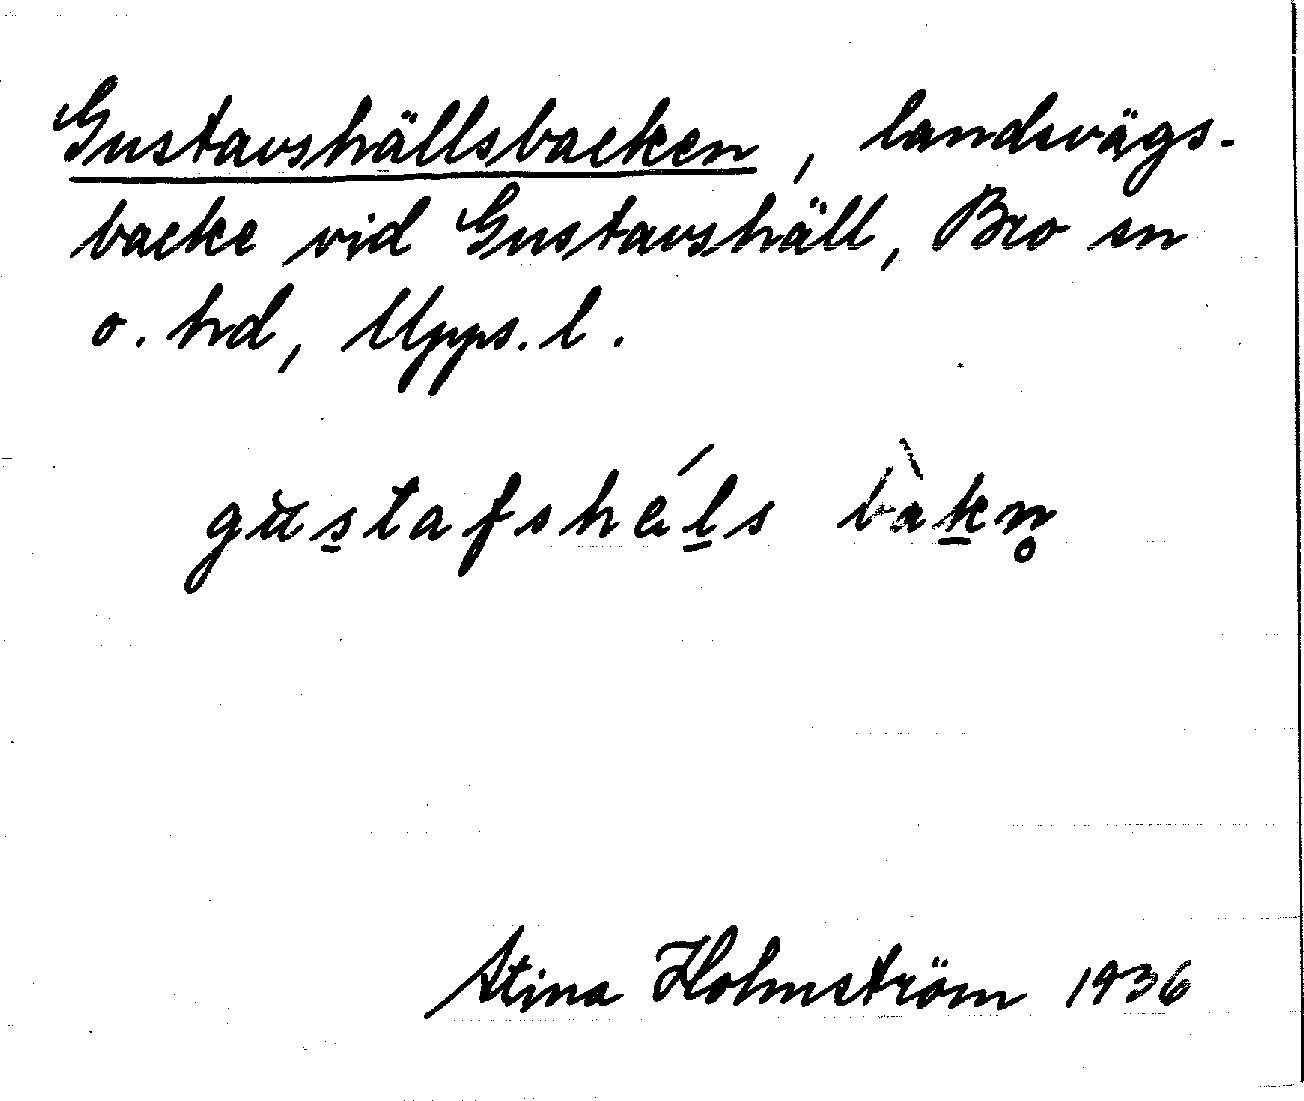 Gustavshällsbacken, landsvägs-
backe vid Gustavshäll, Bro sn
o. hd, Upps. l.
gùs̲tafshál̲s bàk̲n̥
Stina Holmström 1936